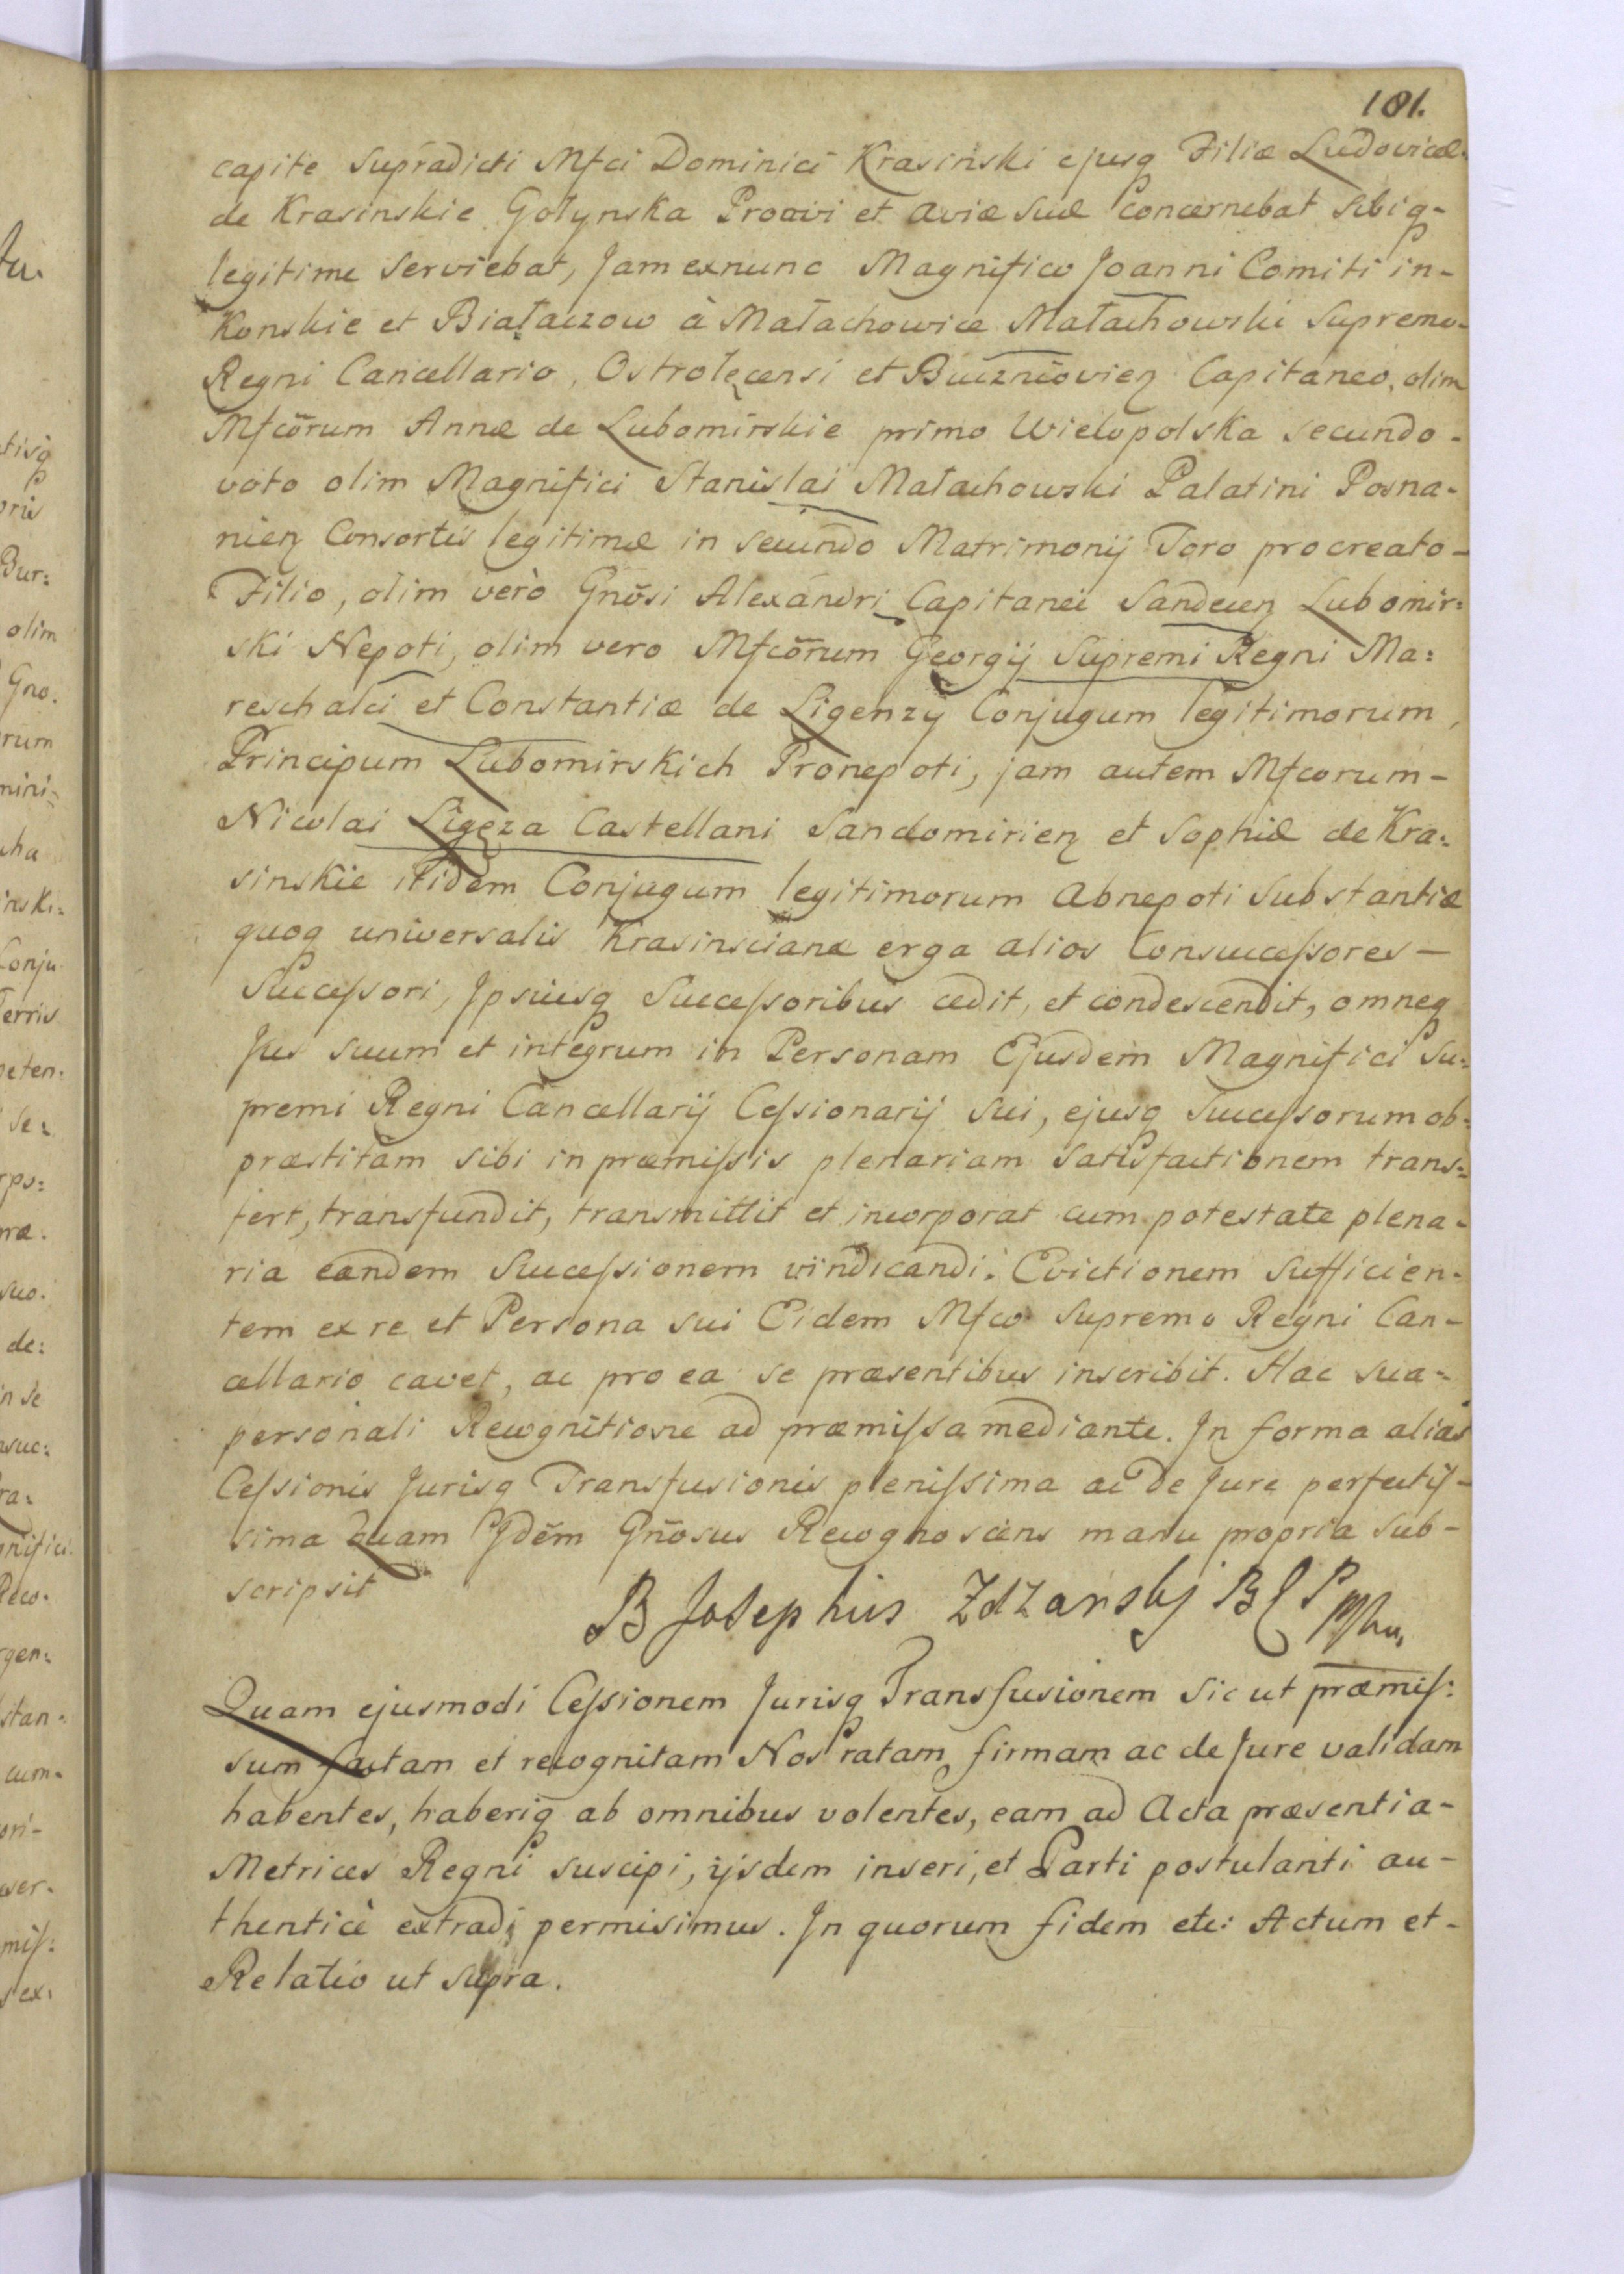 101.
capite supradicti Mfci Dominici Krasinski ejusq Filiæ Ludovicæ
de Krasinskie Gołynska Proavi et aviæ suæ concernebat sibiq-
legitime serviebat, Jam exnunc Magnifico Joanni Comiti in-
Konskie et Białaczow à Małachowice Małachowski Supremo-
Regni Cancellario, Ostrołęcensi et Buczniovien Capitaneo, olim
Mfcõrum Annæ de Lubomirskie primo Wielopolska secundo-
voto olim Magnifici Stanislai Małachowski Palatini Posna-
nien Consortis legitimæ in secundo Matrimonij Toro procreato-
Filio, olim verò Gnõsi Alexandri Capitanei Sandecen Lubomir:
ski Nepoti, olim vero Mfcõrum Georgij Supremi Regni Ma:
reschalci et Constantiæ de Ligenzy Conjugum legitimorum,
Principum Lubomirskich Pronepoti, jam autem Mfcorum-
Nicolai Ligęza Castellani Sandomirien et Sophiæ de Kra:
sinskie itidem Conjugum legitimorum Abnepoti Substantiæ
quoq universalis Krasinscianæ erga alios Consuccessores-
Successori, Ipsiusq Successoribus cedit, et condescendit, omneq
Jus suum et integrum in Personam Ejusdem Magnifici Su:
premi Regni Cancellarij Cessionarij sui, ejusq Successorum ob-
præstitam sibi in præmissis plenariam satisfactionem trans=
fert, transfundit, transmittit et incorporat cum potestate plena-
ria eandem Successionem vindicandi. Evictionem sufficien-
tem ex re et Persona sui Eidem Mfco Supremo Regni Can-
cellario cavet, ac pro ea se præsentibus inscribit. Hac sua-
personali Recognitione ad præmissa mediante. In forma alias
Cessionis Jurisq Transfusionis plenissima ac de Jure perfectis-
sima Quam Idẽm Gnõsus Recognoscens manu propria sub-
scripsit
B Josephus Zdzarskj B C P
Quam ejusmodi Cessionem Jurisq Transfusionem sic ut præmis:
sum factam et recognitam Nos ratam, firmam ac de Jure validam
habentes, haberiq ab omnibus volentes, eam ad Acta præsentia-
Metrices Regni suscipi, ijsdem inseri, et Parti postulanti au-
thenticè extradi permisimus. In quorum fidem etc: Actum et-
Relatio ut supra.